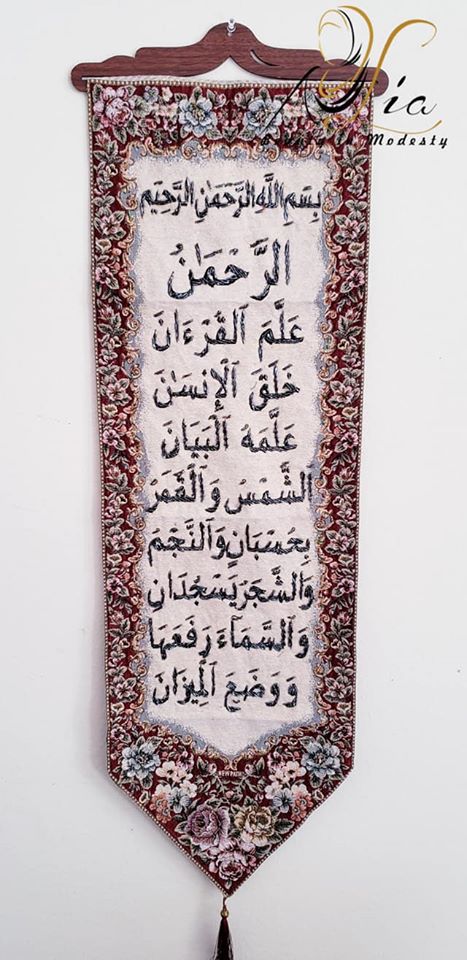 Nia
Modesty
بِسْمِ اللَّهِ الرَّحْمَٰنِ الرَّحِيمِ
الرَّحْمَٰنُ
عَلَّمَ ٱلْقُرْءَانَ
خَلَقَ ٱلْإِنسَٰنَ
عَلَّمَهُ ٱلْبَيَانَ
الشَّمْسُ وَٱلْقَمَرُ
بِحُسْبَانٍ وَٱلنَّجْمُ
وَٱلشَّجَرُ يَسْجُدَانِ
وَٱلسَّمَآءَ رَفَعَهَا
وَوَضَعَ ٱلْمِيزَانَ
NEW PATH